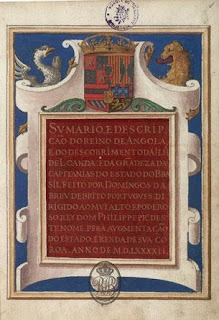 SVMARIO, E DESCRIP
ÇAÕ DO REINO DE ANGOLA,
E DO DESCOBRIMENTO DA ILHA
DE LOANDA. E DA GRANDEZA DAS
CAPITANIAS DO ESTADO DO BRA
SIL FEITO POR DOMINGOS DA
BREV DE BRITO PORTVGVES DI
RIGIDO AO MVI ALTO E PODERO
SO REY DOM PHILIPPE
NOME. PERA AVGMENTAÇAÕ
DO ESTADO, E RENDA DE SVA CO
ROA. ANNO DE M.D.LXXXXII.